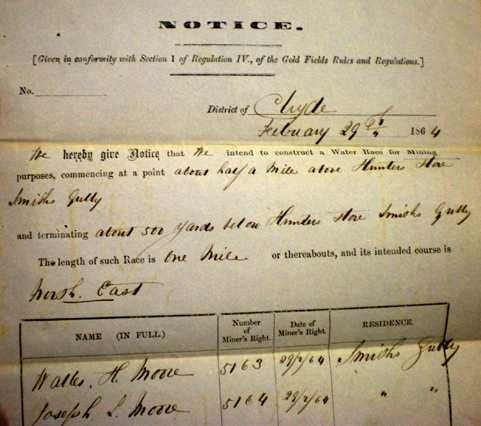 NOTICE.
[Given in conformity with Section 1 of Regulation IV., of the Gold Fields Rules and Regulations.]
No.
District of Clyde
Febuary 29th 1864
We hereby give Notice that We intend to construct a Water Race for Mining
purposes, commencing at a point about half a Mile above Hunters Store
Smiths Gully
and terminating about 500 yards below Hunters Store Smiths Gully
The length of such Race is One Mile or thereabouts, and its intended course is
North East
NAME (IN FULL.) Number of Miner's Right. Date of Miner's Right. RESIDENCE.
Walter. H. Moore 5163 29/2/64 Smiths Gully
Joseph. L. Moore 5164 29/2/64 " "